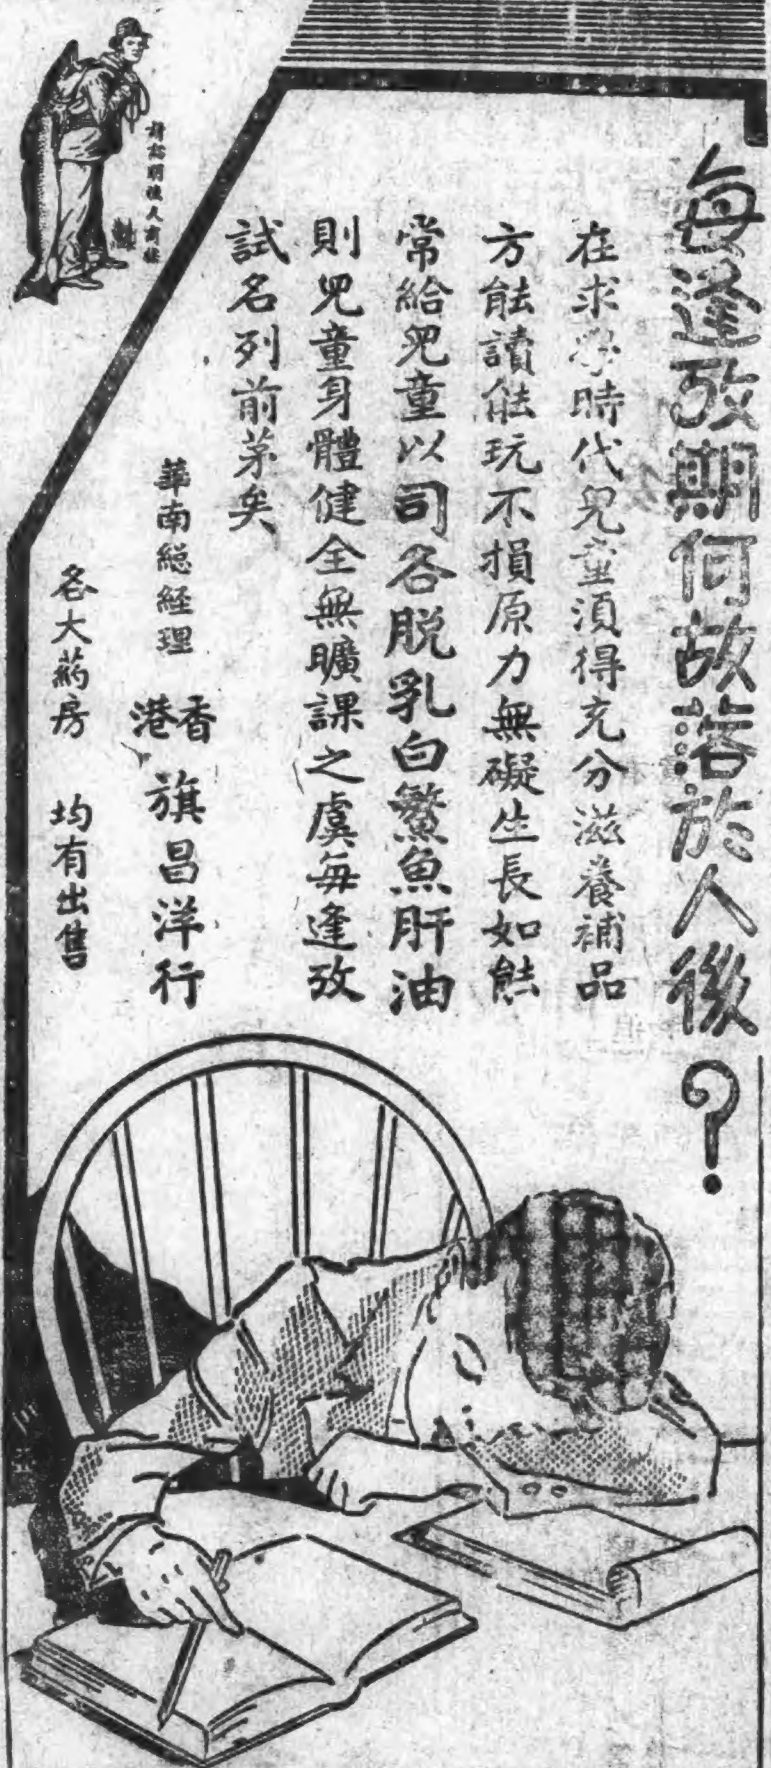 每逢攷期何故落於人後？
在求學時代兒童須得充分滋養補品
方能讀能玩不損原力無礙生長如能
常給兒童以司各脫乳白鰵魚肝油
則兒童身體健全無曠課之虞每逢攷
試名列前茅矣
華南總經理 香港 旗昌洋行
各大葯房 均有出售
請認明漁人商標